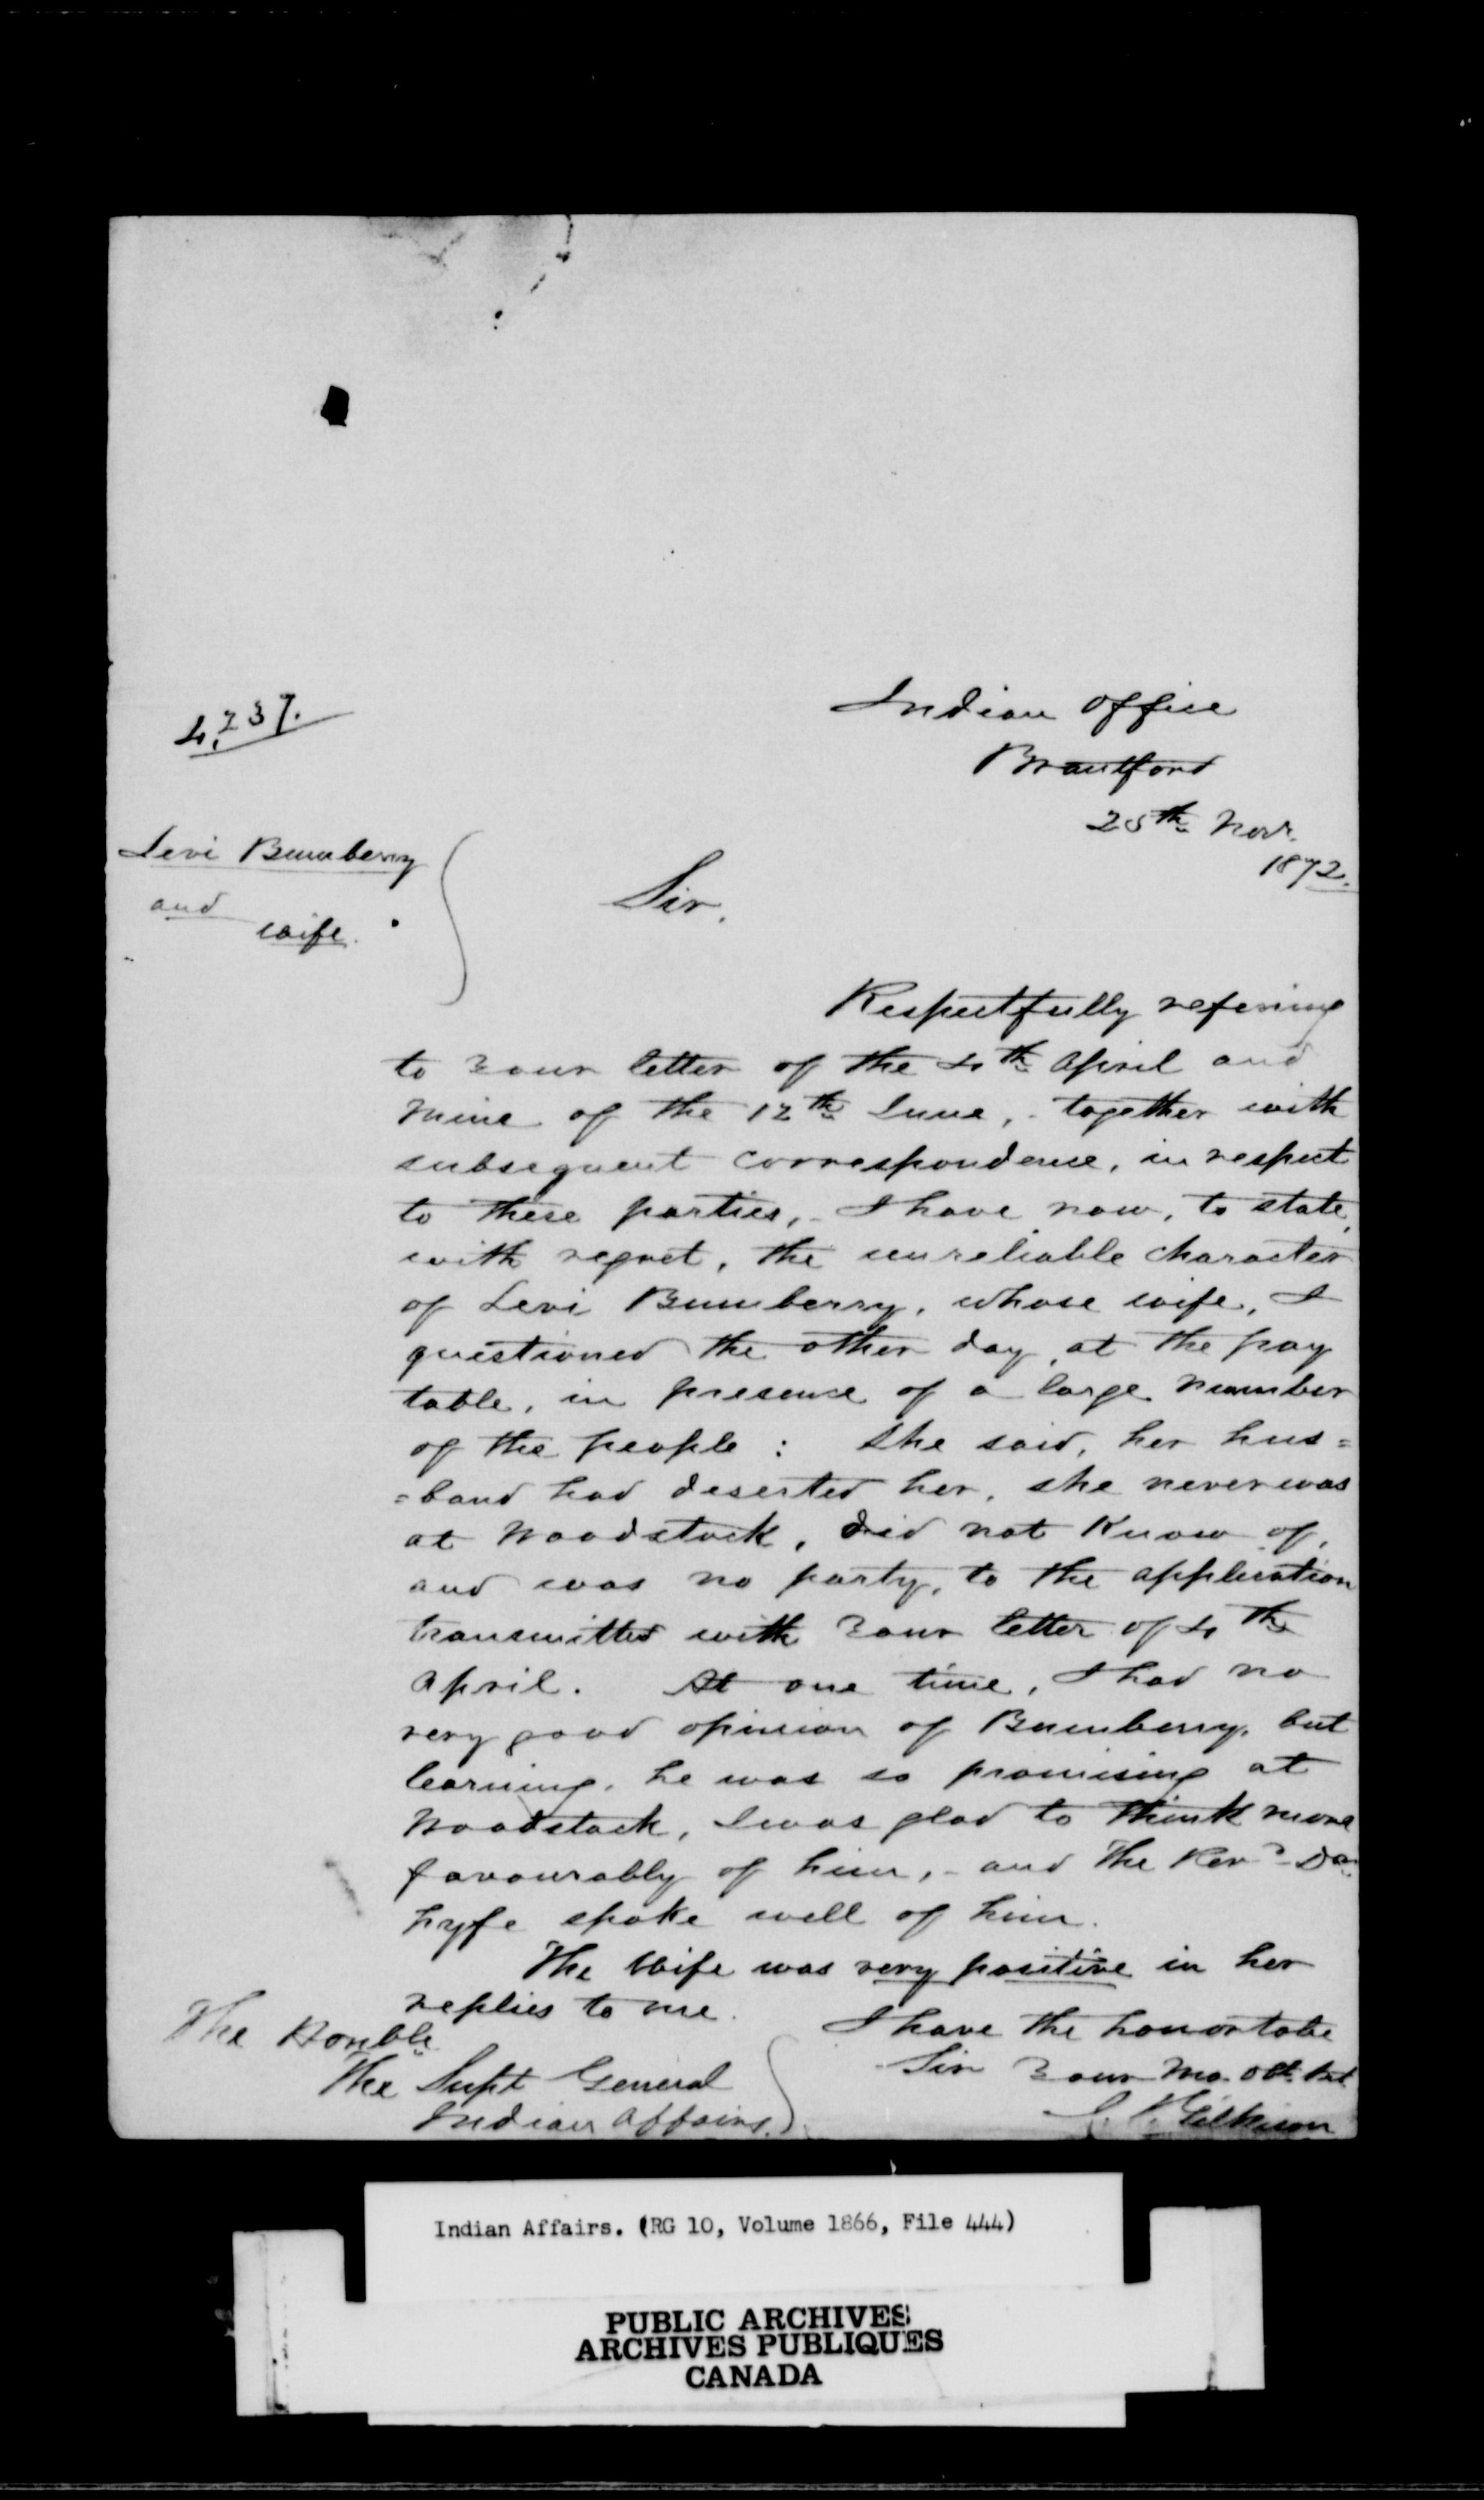 4,237.
Indian Office
Brantford
25th Novr.
1872.
Levi Bumberry
and
wife.
Sir,
Respectfully refering
to Your letter of the 4th April and
mine of the 12th June, - together with
subsequent correspondence, in respect
to these parties, - I have now, to state,
with regret, the unreliable character
of Levi Bumberry, whose wife, I
questioned the other day, at the pay
table, in presence of a large number
of the people : She said, her hus=
=band had deserted her, she never was
at Woodstock, did not know of,
and was no party, to the application
transmitted with Your letter of 4th
April. At one time, I had no
very good opinion of Bumberry, but
learning, he was so promising at
Woodstock, I was glad to think more
favourably of him, - and the Revd Dr
Fyfe spoke well of him.
The Wife was very positive in her
replies to me.
I have the honor to be
Sir Your Mo. Obt. Svt.
J. T. Gilkison
The Honble
The Supt General
Indian Affairs.
Indian Affairs. (RG 10, Volume 1866, File 444)
PUBLIC ARCHIVES
ARCHIVES PUBLIQUES
CANADA